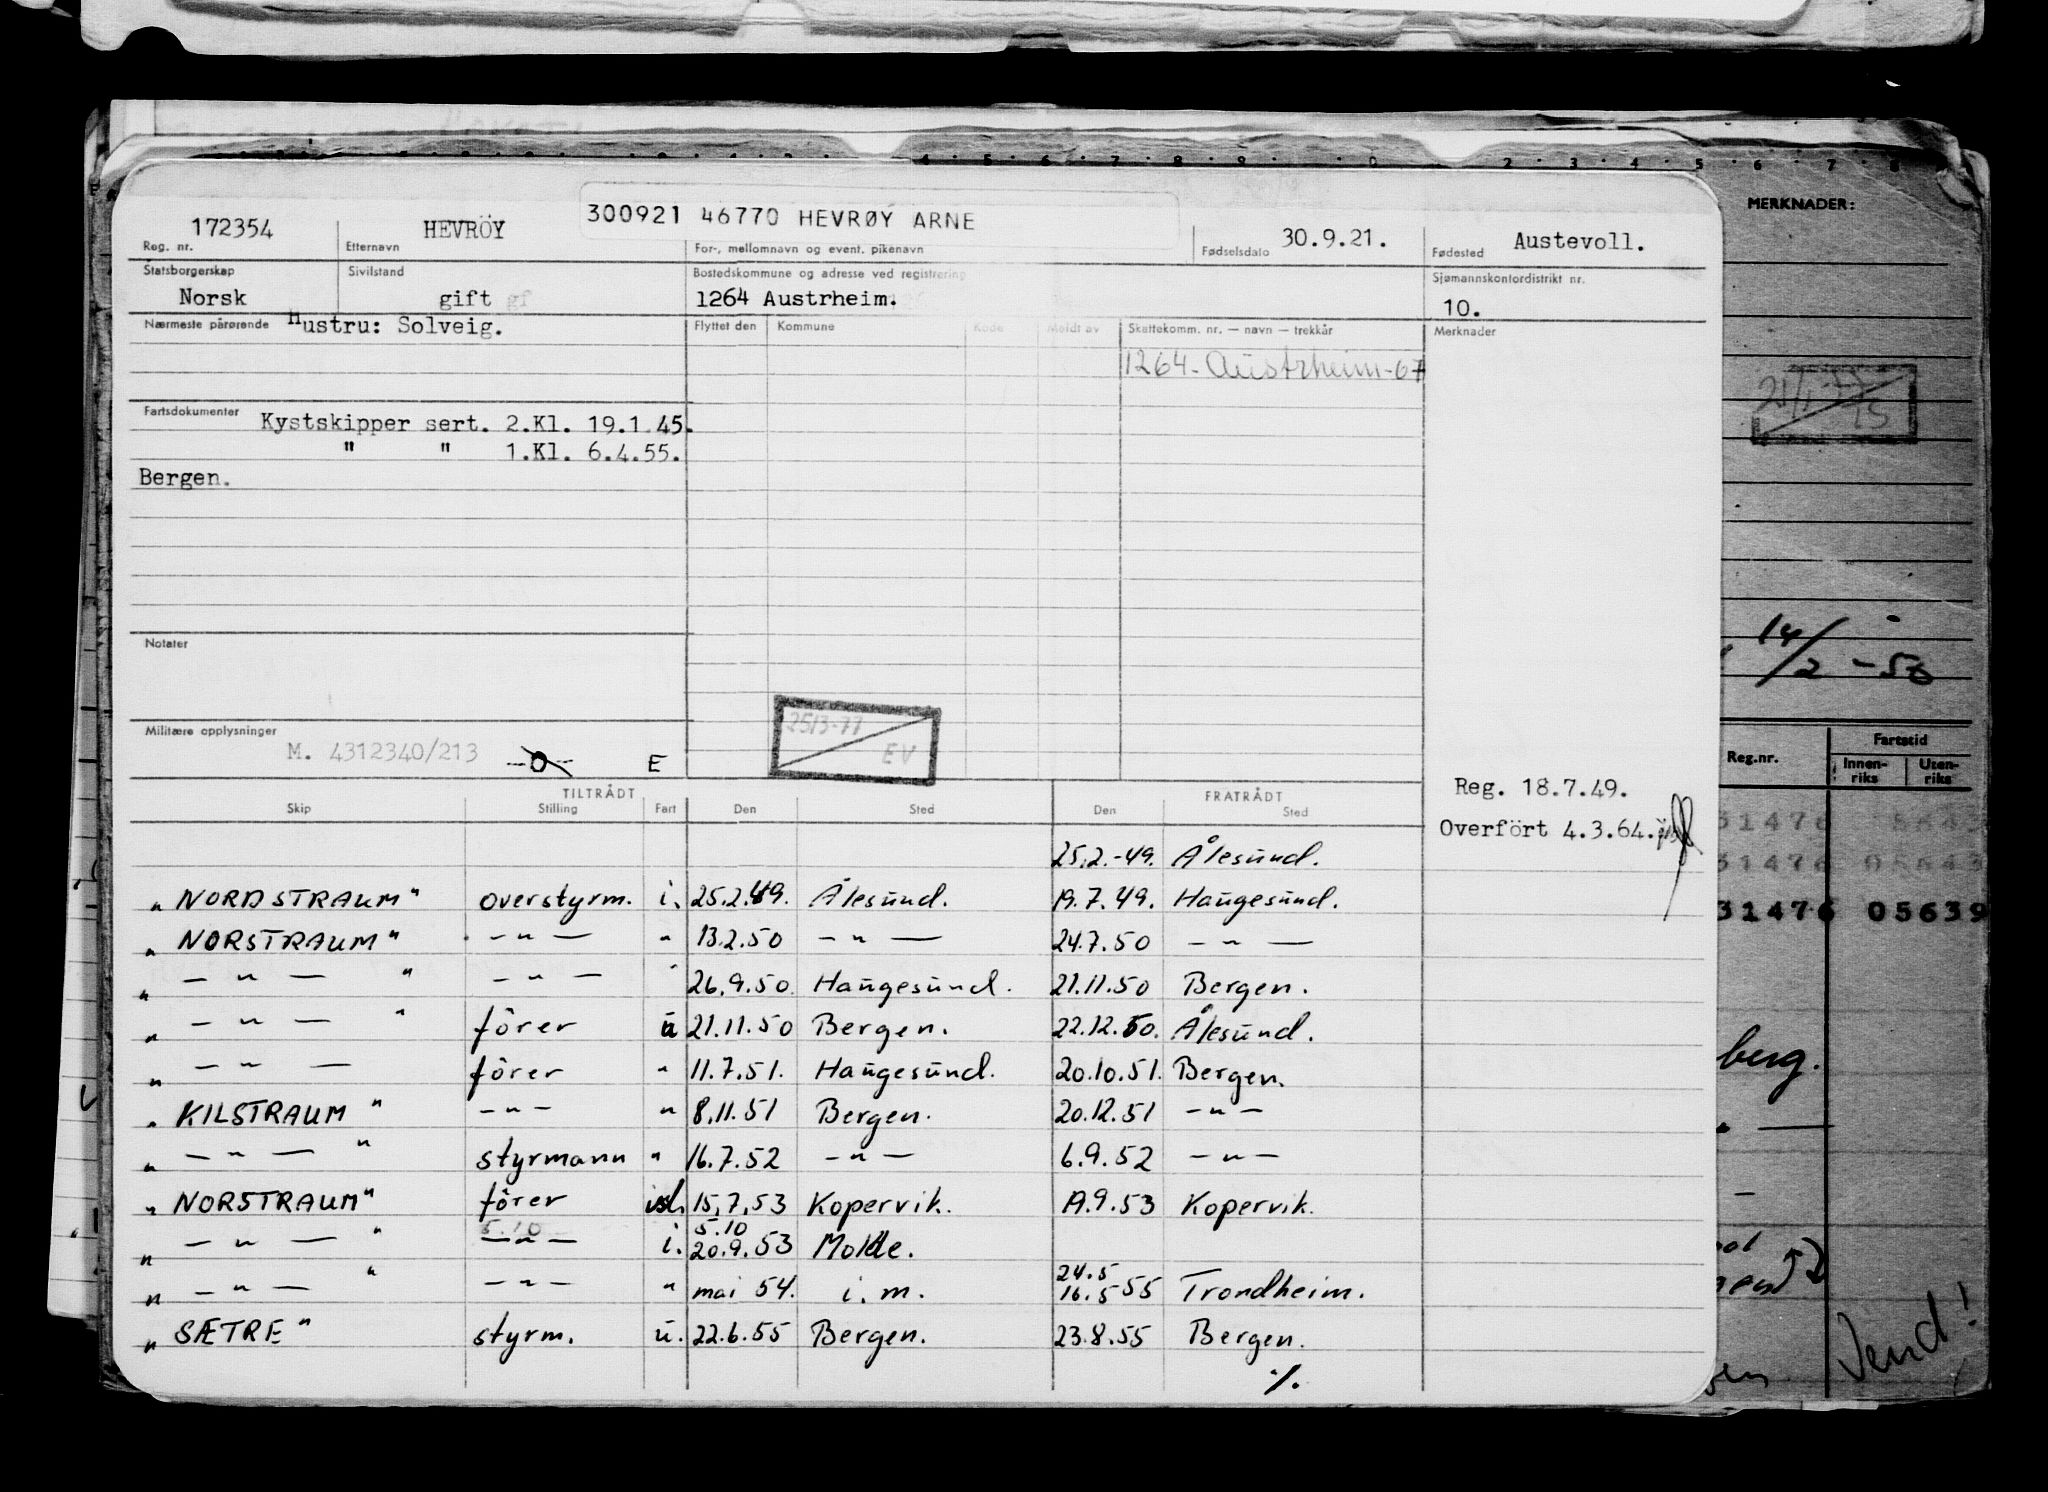 172354 HEVRÖY 300921 46770 HEVRØY ARNE 30.9.21. Austevoll.
Reg. nr. Etternavn For-, mellomnavn og event. pikenavn Fødselsdato Fødested
Statsborgerskap Sivilstand Bostedskommune og adresse ved registrering Sjømannskontordistrikt nr.
Norsk gift gf 1264 Austrheim. 10.
Nærmeste pårørende Hustru: Solveig. Flyttet den Kommune Kode Meldt av Skattekomm. nr. — navn — trekkår Merknader
1264-Austrheim-67
Fartsdokumenter Kystskipper sert. 2.Kl. 19.1.45.
" " 1.Kl. 6.4.55.
Bergen.
Notater
25/3-77
EV
Militære opplysninger
M. 4312340/213 -0- E
Reg. 18.7.49.
Overfört 4.3.64.
TILTRÅDT FRATRÅDT
Skip Stilling Fart Den Sted Den Sted
25.2.-49. Ålesund.
" NORDSTRAUM " overstyrm. i. 25.2.49. Ålesund. 19.7.49. Haugesund.
" NORSTRAUM " — " — " 13.2.50 — " — 24.7.50 — " —
" — " — " — " — " 26.9.50. Haugesund. 21.11.50 Bergen.
" — " — " förer u 21.11.50 Bergen. 22.12.50. Ålesund.
" — " — förer " 11.7.51. Haugesund. 20.10.51. Bergen.
" KILSTRAUM " — " — " 8.11.51 Bergen. 20.12.51 — " —
" — " — " styrmann " 16.7.52 — " — 6.9.52 — " —
" NORSTRAUM " förer 15.7.53 Kopervik. 19.9.53 Kopervik.
5.10 5.10
" — " — " — " — i. 20.9.53 Molde.
24.5
" — " — " — " — " mai 54. i. m. 16.5 55 Trondheim.
" SÆTRE " styrm. u. 22.6.55 Bergen. 23.8.55 Bergen.
./.
4 5 6 7 8 9 0 2 3 4 5 6 7 8
MERKNADER:
15
14/2 - 56
Reg.nr. Fartstid
Innen-riks Uten-riks
31476 05643
31476 05643
31476 05639
berg.
" —
Vend!